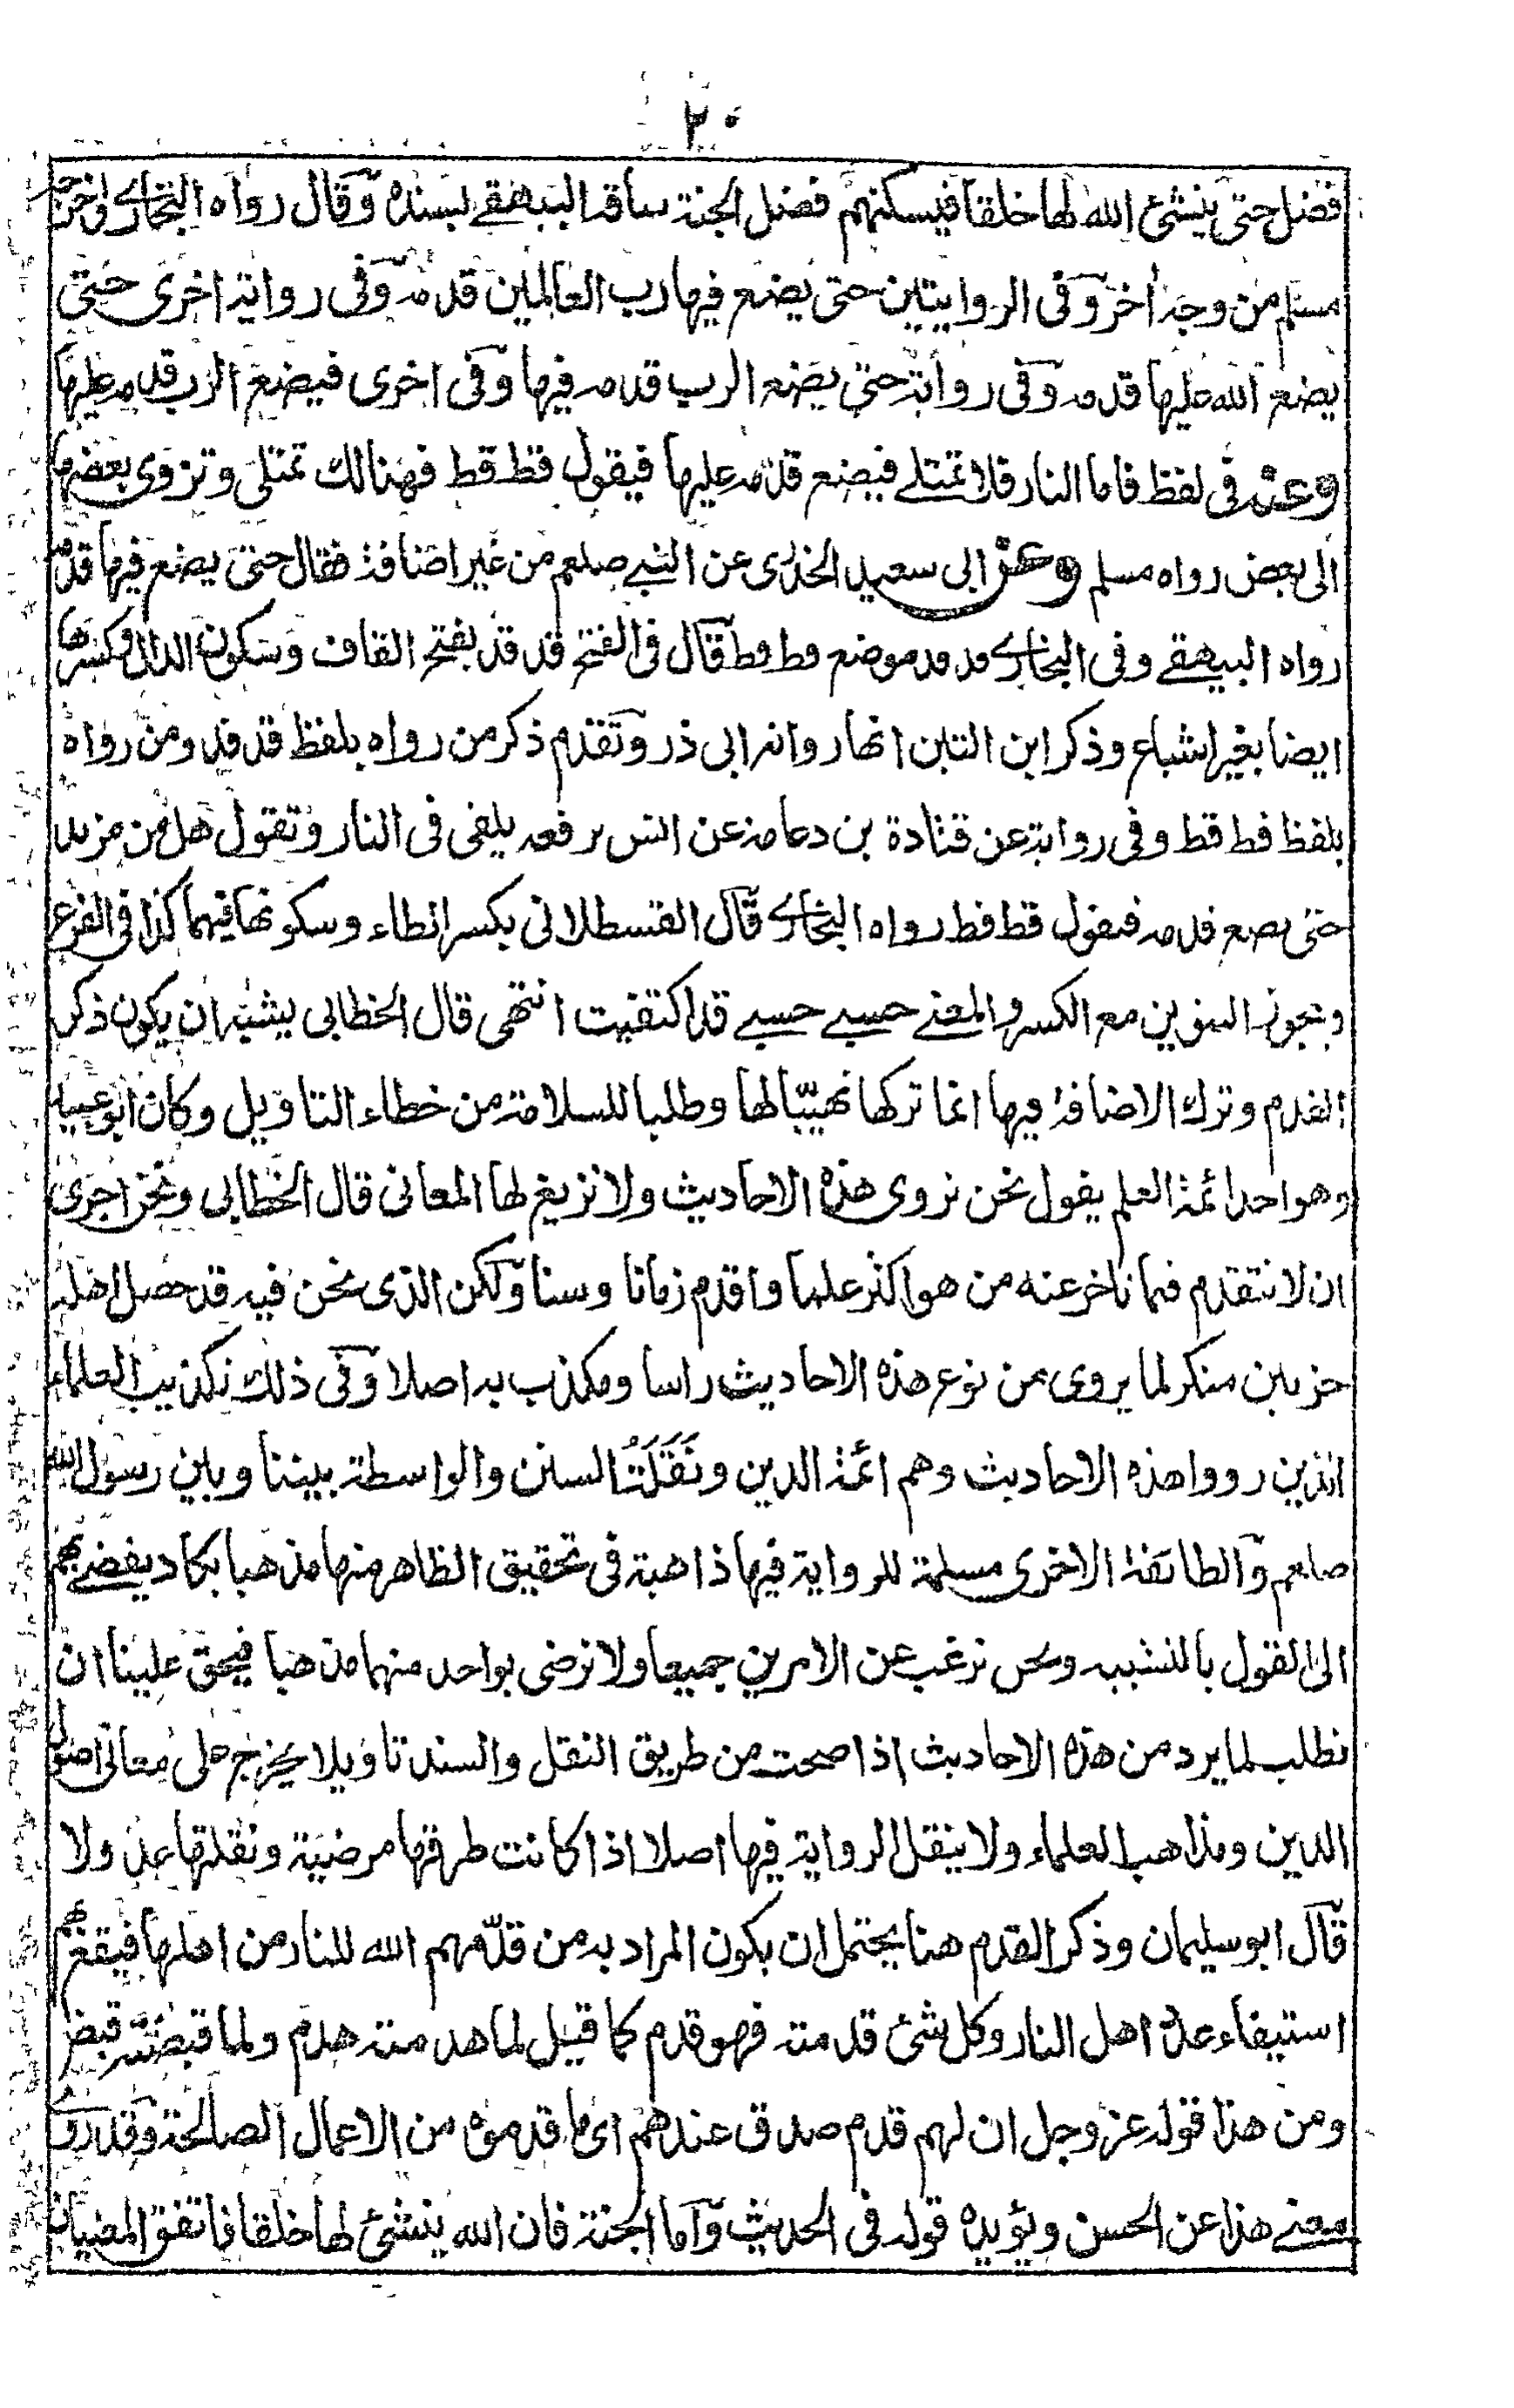 ٢٠
فضل حتى ينشئ الله لها خلقا فيسكنهم فضل الجنة ساقه البيهقے بسنده وقال رواه البخارے واخرجه
مسلم من وجه اخر وفى الروايتين حتى يضع فيها رب العالمين قدمه وفى رواية اخرى حتى
يضع الله عليها قدمه وفى رواية حتى يضع الرب قدمه فيها وفى اخرى فيضع الرب قدمه عليها
وعنه فى لفظ فاما النار فلا تمتلے فيضع قدمه عليها فيقول قط قط فهنالك تمتلى وتزوى بعضها
الى بعض رواه مسلم وعن ابى سعيد الخدرى عن النبے صلعم من غير اضافة فقال حتى يضع فيها قدمه
رواه البيهقے وفى البخارے قد قد موضع قط قط قال فى الفتح قد قد بفتح القاف وسكون الدال وكسرها
ايضا بغير اشباع وذكر ابن التين انها رواية ابى ذر وتقدم ذكر من رواه بلفظ قد قد ومن رواه
بلفظ قط قط وفى رواية عن قتادة بن دعامة عن انس يرفعه يلقى فى النار وتقول هل من مزيد
حتى يضع قدمه فتقول قط قط رواه البخارے قال القسطلانى بكسر الطاء وسكونها فيهما كذا فى الفرع
ويجوز التنوين مع الكسر والمعنے حسبے حسبے قد اكتفيت انتهى قال الخطابى يشبه ان يكون ذكر
القدم وترك الاضافة فيها انما تركها تهيّبا لها وطلبا للسلامة من خطاء التاويل وكان ابو عبيد
وهو احد ائمة العلم يقول نحن نروى هذه الاحاديث ولا نزيغ لها المعانى قال الخطابى ونحن احرى
ان لا نتقدم فيما تاخر عنه من هو اكثر علما واقدم زمانا وسنا ولكن الذى نحن فيه قد حصل اهله
حزبين منكر لما يروى من نوع هذه الاحاديث راسا ومكذب به اصلا وفى ذلك تكذيب العلماء
الذين رووا هذه الاحاديث وهم ائمة الدين ونَقَلَةُ السنن والواسطة بيننا وبين رسول الله
صلعم والطائفة الاخرى مسلمة للرواية فيها ذاهبة فى تحقيق الظاهر منها مذهبا يكاد يفضے بهم
الى القول بالتشبيه ونحن نرغب عن الامرين جميعا ولا نرضى بواحد منهما مذهبا فيحق علينا ان
نطلب لما يرد من هذه الاحاديث اذا صحت من طريق النقل والسند تاويلا يخرج على معانى اصول
الدين ومذاهب العلماء ولا يبطل الرواية فيها اصلا اذا كانت طرقها مرضية ونقلتها عدولا
قال ابو سليمان وذكر القدم هنا يحتمل ان يكون المراد به من قدّمهم الله للنار من اهلها فيقع بهم
استيفاء عدة اهل النار وكل شئ قدمته فهو قدم كما قيل لما هدمته هدم ولما قبضته قبض
ومن هذا قوله عز وجل ان لهم قدم صدق عندهم اى ما قدموه من الاعمال الصالحة وقد روے
معنے هذا عن الحسن ويؤيده قوله فى الحديث واما الجنة فان الله ينشئ لها خلقا فاتفق المعنيان